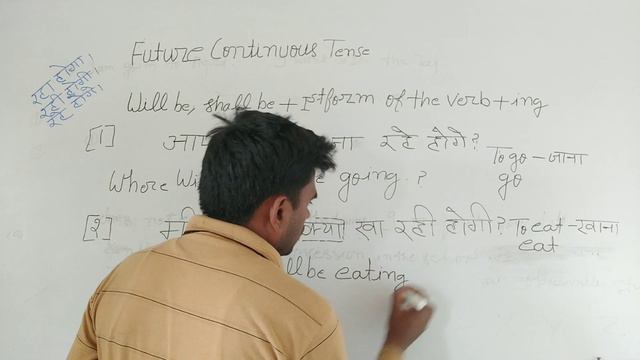 Future Continuous Tense
रहा होगा
रही होगी
रहे होंगे
Will be, shall be + Ist form of the verb + ing
[1] आप ना रहे होंगे?
To go - जाना
Where Wi e going.?
go
[२] क्या खा रही होगी?
To eat - खाना
eat
ll be eating